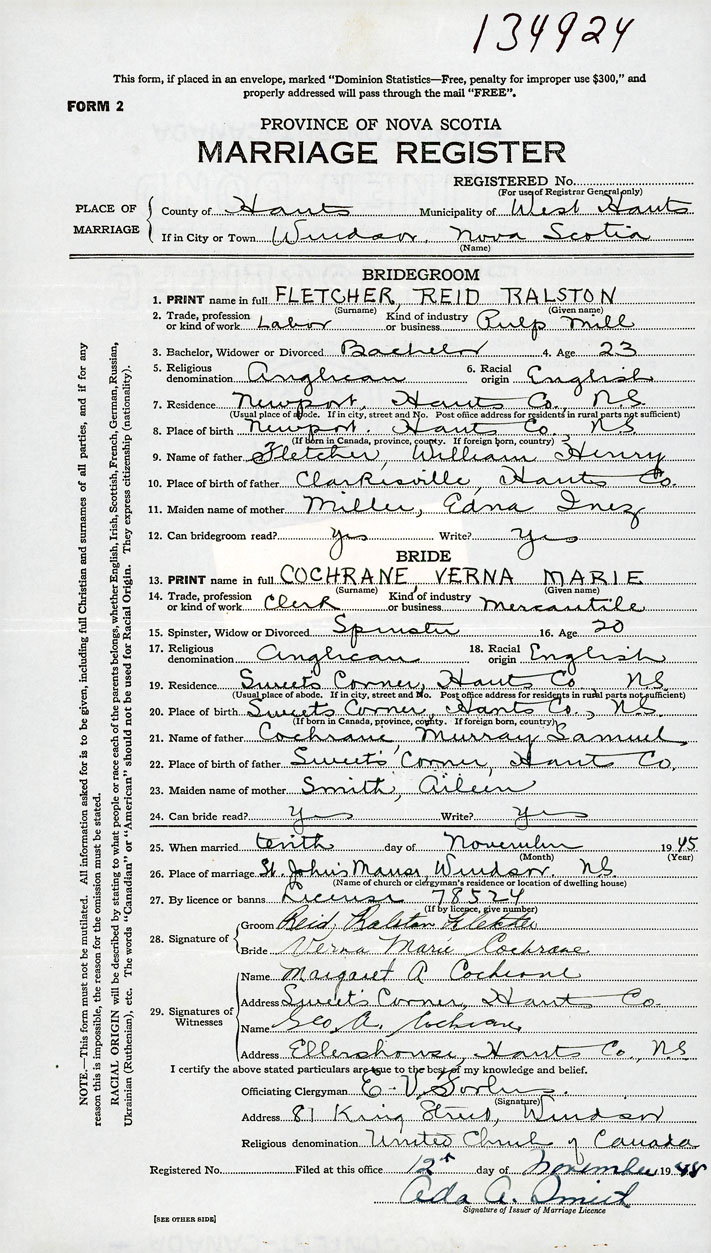 134924
This form, if placed in an envelope, marked "Dominion Statistics—Free, penalty for improper use $300," and
properly addressed will pass through the mail "FREE".
FORM 2
PROVINCE OF NOVA SCOTIA
MARRIAGE REGISTER
REGISTERED No.
(For use of Registrar General only)
PLACE OF MARRIAGE
County of Hants Municipality of West Hants
If in City or Town Windsor, Nova Scotia
(Name)
BRIDEGROOM
1. PRINT name in full FLETCHER, REID RALSTON
(Surname) (Given name)
2. Trade, profession or kind of work Labor Kind of industry or business Pulp Mill
3. Bachelor, Widower or Divorced Bachelor 4. Age 23
5. Religious denomination Anglican 6. Racial origin English
7. Residence Newport, Hants Co., N.S.
(Usual place of abode. If in city, street and No. Post office address for residents in rural parts not sufficient)
8. Place of birth Newport, Hants Co. N.S.
(If born in Canada, province, county. If foreign born, country)
9. Name of father Fletcher, William Henry
10. Place of birth of father Clarksville, Hants Co.
11. Maiden name of mother Miller, Edna Inez
12. Can bridegroom read? Yes Write? Yes
BRIDE
13. PRINT name in full COCHRANE, VERNA MARIE
(Surname) (Given name)
14. Trade, profession or kind of work Clerk Kind of industry or business Mercantile
15. Spinster, Widow or Divorced Spinster 16. Age 20
17. Religious denomination Anglican 18. Racial origin English
19. Residence Sweets Corner, Hants Co N.S.
(Usual place of abode. If in city, street and No. Post office address for residents in rural parts not sufficient)
20. Place of birth Sweets Corner, Hants Co., N.S.
(If born in Canada, province, county. If foreign born, country)
21. Name of father Cochrane, Murray Samuel
22. Place of birth of father Sweet's Corner, Hants Co.
23. Maiden name of mother Smith, Aileen
24. Can bride read? Yes Write? Yes
25. When married tenth day of November 1945
(Month) (Year)
26. Place of marriage St. John's Manse, Windsor. N.S.
(Name of church or clergyman's residence or location of dwelling house)
27. By licence or banns License 78524
(If by licence, give number)
28. Signature of
Groom Reid Ralston Fletcher
Bride Verna Marie Cochrane
29. Signatures of Witnesses
Name Margaret A Cochrane
Address Sweet's Corner, Hants Co.
Name Geo. A. Cochrane
Address Ellershouse, Hants Co., N.S
I certify the above stated particulars are true to the best of my knowledge and belief.
Officiating Clergyman E. V.
(Signature)
Address 81 King Street, Windsor
Religious denomination United Church of Canada
Registered No. Filed at this office 12th day of November 1945
Ada A. Smith
Signature of Issuer of Marriage Licence
[SEE OTHER SIDE]
NOTE.—This form must not be mutilated. All information asked for is to be given, including full Christian and surnames of all parties, and if for any
reason this is impossible, the reason for the omission must be stated.
RACIAL ORIGIN will be described by stating to what people or race each of the parents belongs, whether English, Irish, Scottish, French, German, Russian,
Ukrainian (Ruthenian), etc. The words "Canadian" or "American" should not be used for Racial Origin. They express citizenship (nationality).